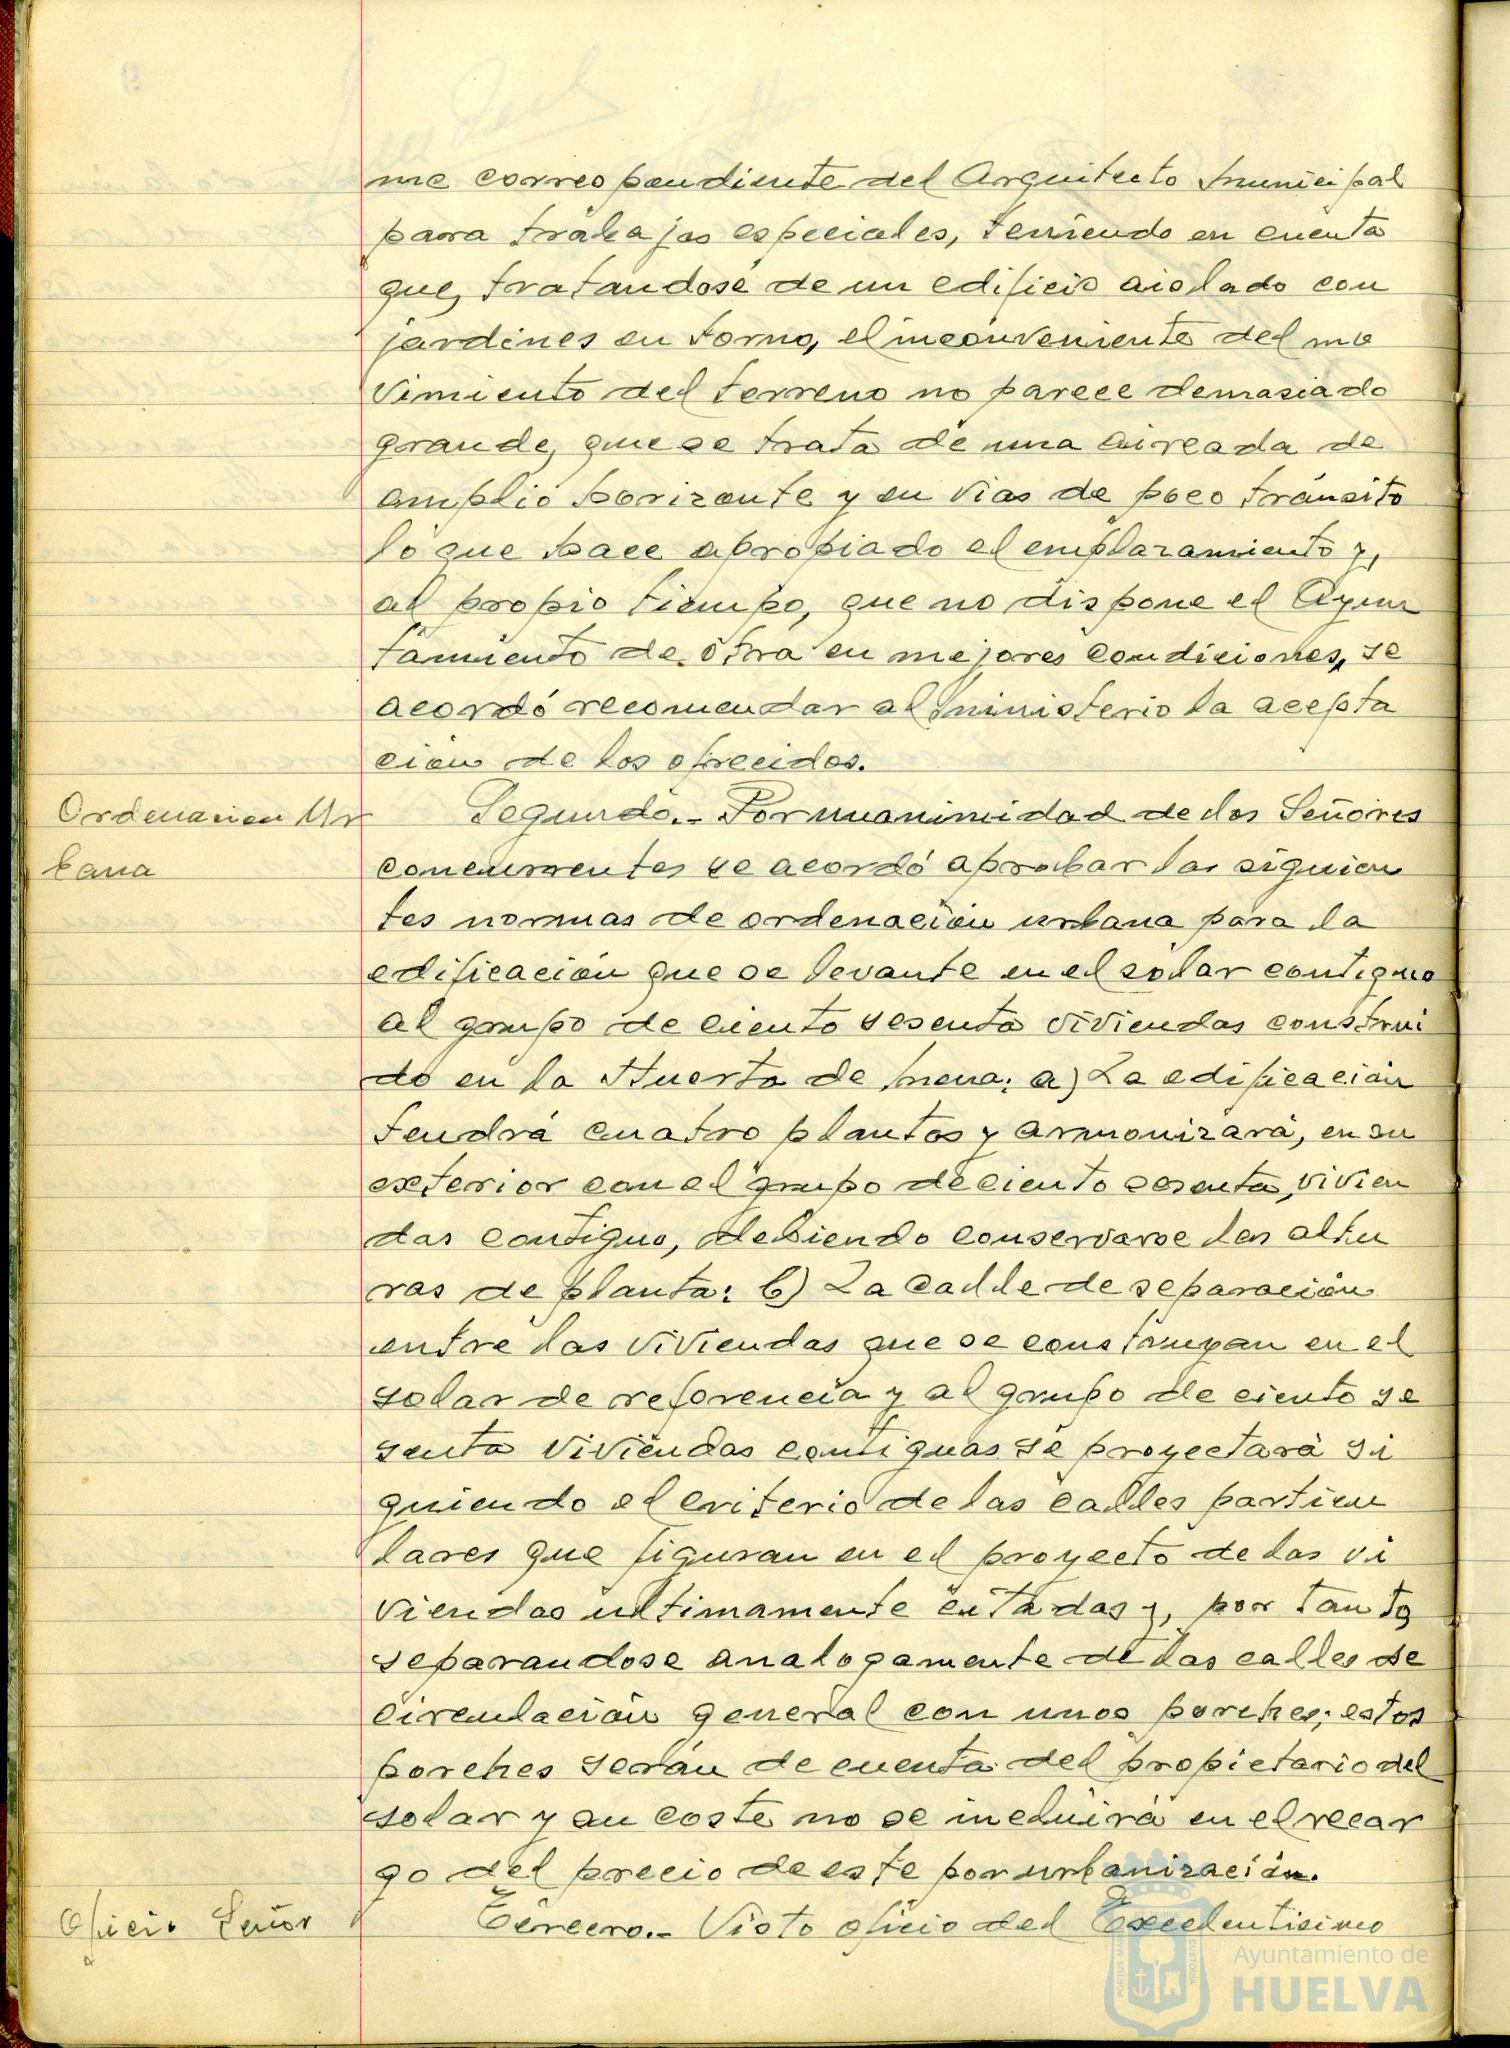 me correspondiente del Arquitecto municipal
para trabajos especiales, teniendo en cuenta
que, tratandose de un edificio aislado con
jardines en torno, el inconveniente del mo
vimiento del terreno no parece demasiado
grande, que se trata de una aireada de
amplio horizonte y en vias de poco tránsito
lo que hace apropiado el emplazamiento y,
al propio tiempo, que no dispone el Ayun
tamiento de otra en mejores condiciones, se
acordó recomendar al ministerio la acepta
ción de los ofrecidos.
Ordenacion Ur
bana
Segundo.- Por unanimidad de los Señores
concurrentes se acordó aprobar las siguien
tes normas de ordenación urbana para la
edificación que se levante en el solar contiguo
al grupo de ciento sesenta viviendas construi
do en la Huerta de Mena: a) La edificación
tendrá cuatro plantas y armonizará, en su
exterior con el grupo de ciento sesenta vivien
das contiguo, debiendo conservarse las altu
ras de planta: b) La calle de separación
entre las viviendas que se construyan en el
solar de referencia y al grupo de ciento se
senta viviendas contiguas se proyectará si
guiendo el criterio de las calles particu
lares que figuran en el proyecto de las vi
viendas ultimamente citadas y, por tanto,
separandose analogamente de las calles de
circulación general con unos porches; estos
porches serán de cuenta del propietario del
solar y su coste no se incluirá en el recar
go del precio de este por urbanización.
Oficio Señor
Tercero.- Visto oficio del Excelentisimo
Ayuntamiento de
HUELVA